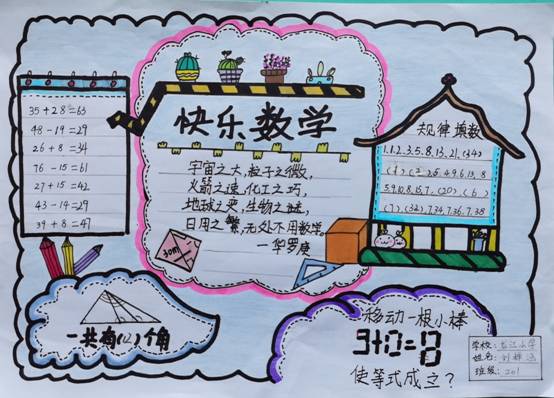 快乐数学
35+28=63
48-19=29
26+8=34
76-15=61
27+15=42
43-14=29
39+8=47
宇宙之大,粒子之微,
火箭之速,化工之巧,
地球之变,生物之谜,
日用之繁,无处不用数学。
一华罗庚
30m
规律填数
1.1.2.3.5.8.13.21.(34)
5.9.10.8.15.7.(20).(6)
(7).(32).7.34.7.36.7.38
一共有(12)个角
移动一根小棒
9+0=8
使等式成立?
学校:龙江小学
姓名:
班级:201